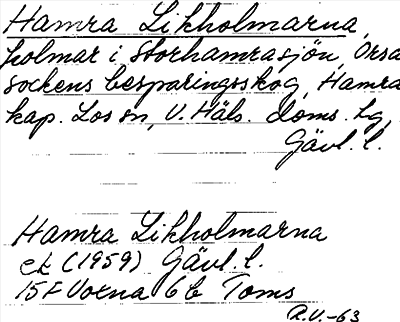 Hamra Likholmarna,
holmar i Storhamrasjön, Orsa
sockens besparingsskog, Hamra
kap. Los sn, V. Häls. doms. tg,
Gävl. l.
Hamra Likholmarna
ek (1959) Gävl. l.
15F Voxna 6b Toms
R.V.-63